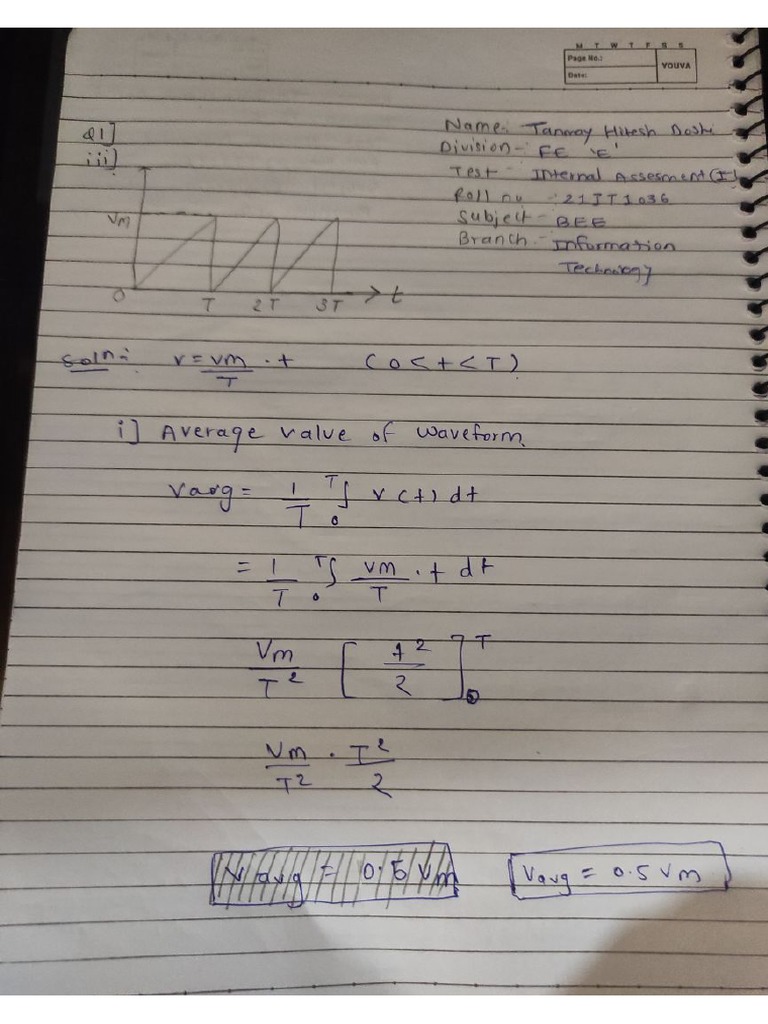 M T W T F S S
Page No.:
Date:
YOUVA
Q1]
iii)
Name:- Tanmay Hitesh Doshi
Division- FE 'E'
Test - Internal Assesment (I)
Roll no : 21IT1036
Subject - BEE
Branch - Information
Technology
Vm
0 T 2T 3T → t
Soln:- v = Vm/T . t (0 < t < T)
i] Average value of waveform.
Vavg = 1/T 0∫T v(t) dt
= 1/T 0∫T Vm/T . t dt
Vm/T² [t²/2]0T
Vm/T² . T²/2
Vavg = 0.5 Vm
Vavg = 0.5 Vm